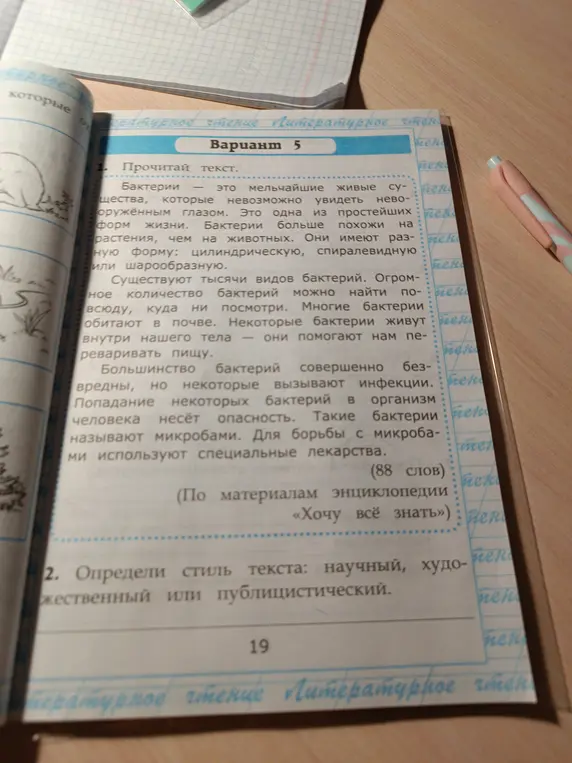 которые
Литературное чтение
Вариант 5
1. Прочитай текст.
Бактерии — это мельчайшие живые су-
щества, которые невозможно увидеть нево-
оружённым глазом. Это одна из простейших
форм жизни. Бактерии больше похожи на
растения, чем на животных. Они имеют раз-
ную форму: цилиндрическую, спиралевидную
или шарообразную.
Существуют тысячи видов бактерий. Огром-
ное количество бактерий можно найти по-
всюду, куда ни посмотри. Многие бактерии
обитают в почве. Некоторые бактерии живут
внутри нашего тела — они помогают нам пе-
реваривать пищу.
Большинство бактерий совершенно без-
вредны, но некоторые вызывают инфекции.
Попадание некоторых бактерий в организм
человека несёт опасность. Такие бактерии
называют микробами. Для борьбы с микроба-
ми используют специальные лекарства.
(88 слов)
(По материалам энциклопедии
«Хочу всё знать»)
2. Определи стиль текста: научный, худо-
жественный или публицистический.
19
Литературное чтение Литературное чтен